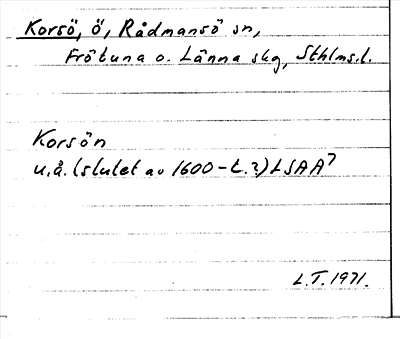 Korsö, ö, Rådmansö sn,
Frötuna o. Länna skg, Sthlms l.
Korsön
u.å. (slutet av 1600-t.?) LSAA7
L.T. 1971.